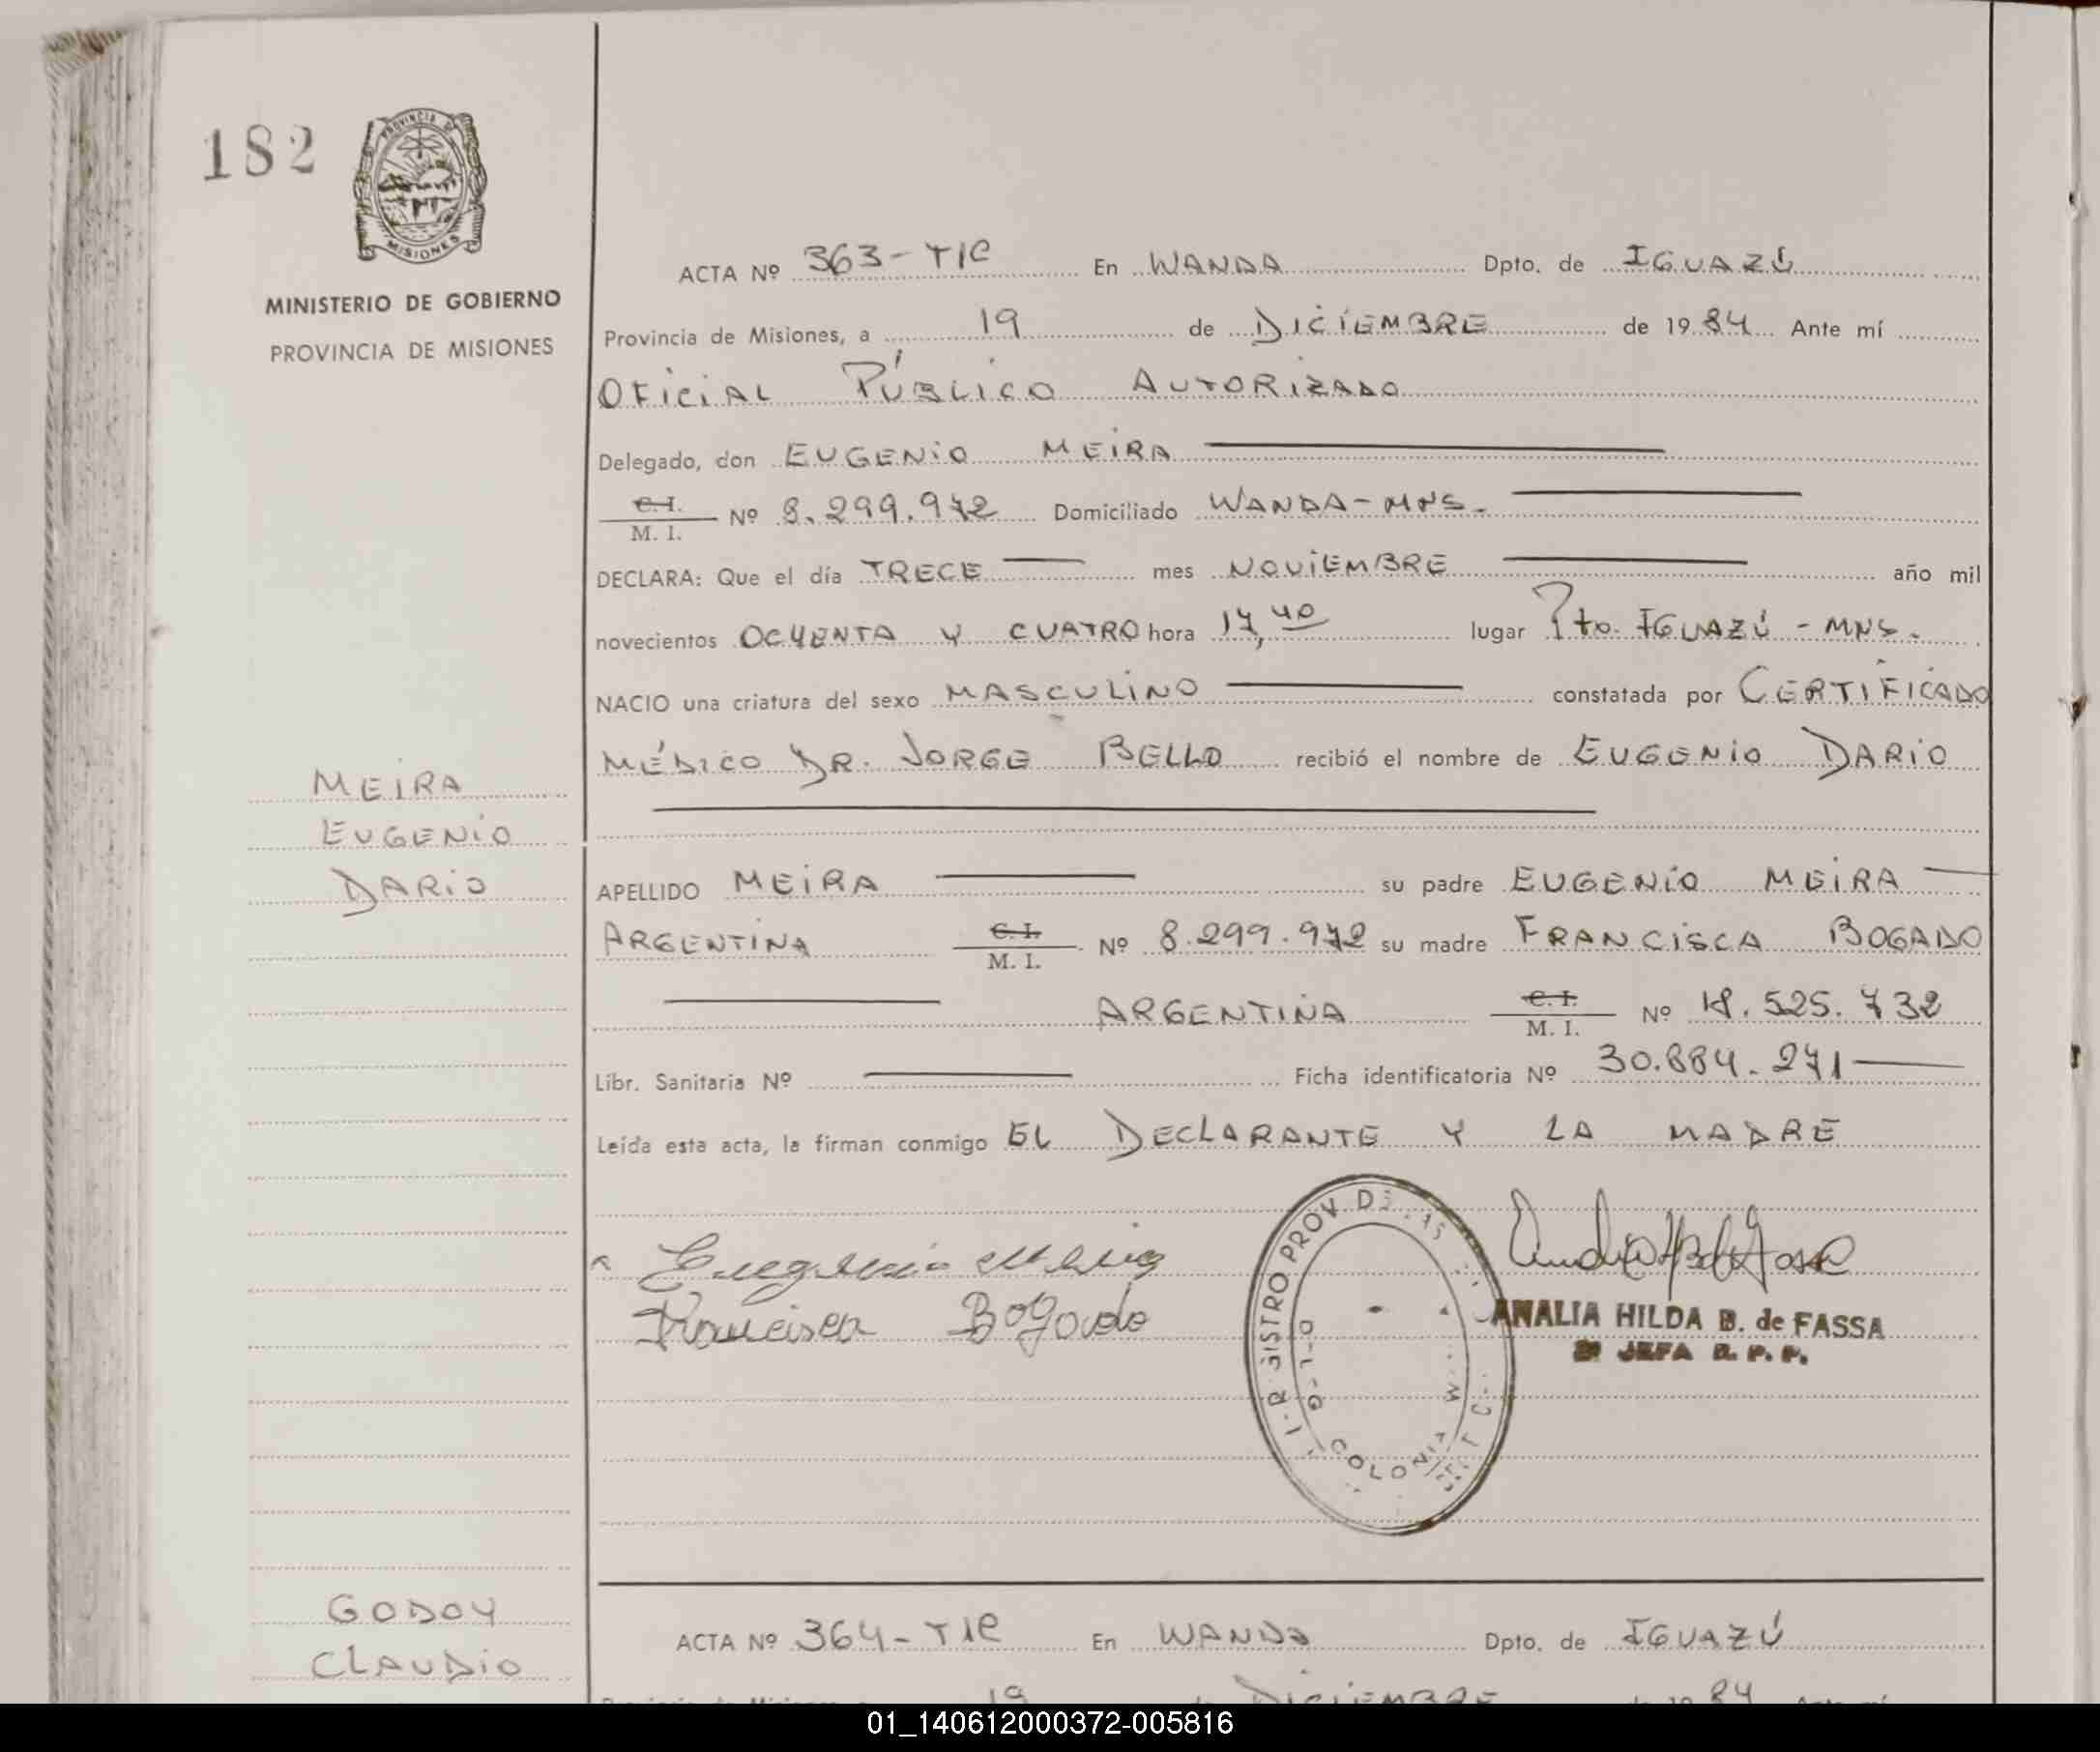 182
PROVINCIA DE
MISIONES
MINISTERIO DE GOBIERNO
PROVINCIA DE MISIONES
ACTA Nº 363-TIC En WANDA Dpto. de IGUAZÚ
Provincia de Misiones, a 19 de DICIEMBRE de 1984 Ante mí
OFICIAL PÚBLICO AUTORIZADO
Delegado, don EUGENIO MEIRA
C.I. M. I. Nº 8.299.972 Domiciliado WANDA-MNS.
DECLARA: Que el día TRECE mes NOVIEMBRE año mil
novecientos OCHENTA Y CUATRO hora 17,40 lugar Pto. IGUAZÚ - MNS.
NACIO una criatura del sexo MASCULINO constatada por CERTIFICADO
MÉDICO DR. JORGE BELLO recibió el nombre de EUGENIO DARIO
MEIRA
EUGENIO
DARIO
APELLIDO MEIRA su padre EUGENIO MEIRA
ARGENTINA C.I. M. I. Nº 8.299.972 su madre FRANCISCA BOGADO
ARGENTINA C.I. M. I. Nº 18.525.732
Libr. Sanitaria Nº Ficha identificatoria Nº 30.884.271
Leída esta acta, la firman conmigo EL DECLARANTE Y LA MADRE
Eugenio Meira
Francisca Bogado
PROV. DE
COLONIA
ANALIA HILDA B. de FASSA
2º JEFA R. P. P.
GODOY
CLAUDIO
ACTA Nº 364-TIC En WANDA Dpto. de IGUAZÚ
19 DICIEMBRE 84
01_140612000372-005816